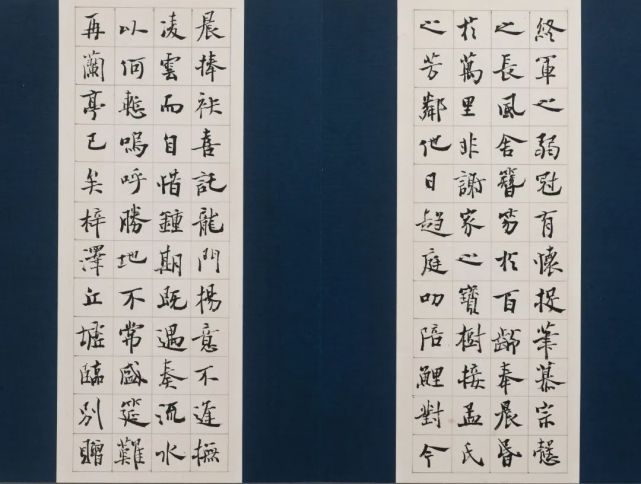 終軍之弱冠有懷投筆慕宗愨
之長風舍簪笏於百齡奉晨昏
於萬里非謝家之寶樹接孟氏
之芳鄰他日趍庭叨陪鯉對今
晨捧袂喜託龍門楊意不逢撫
凌雲而自惜鍾期既遇奏流水
以何慙嗚呼勝地不常盛筵難
再蘭亭已矣梓澤丘墟臨別贈